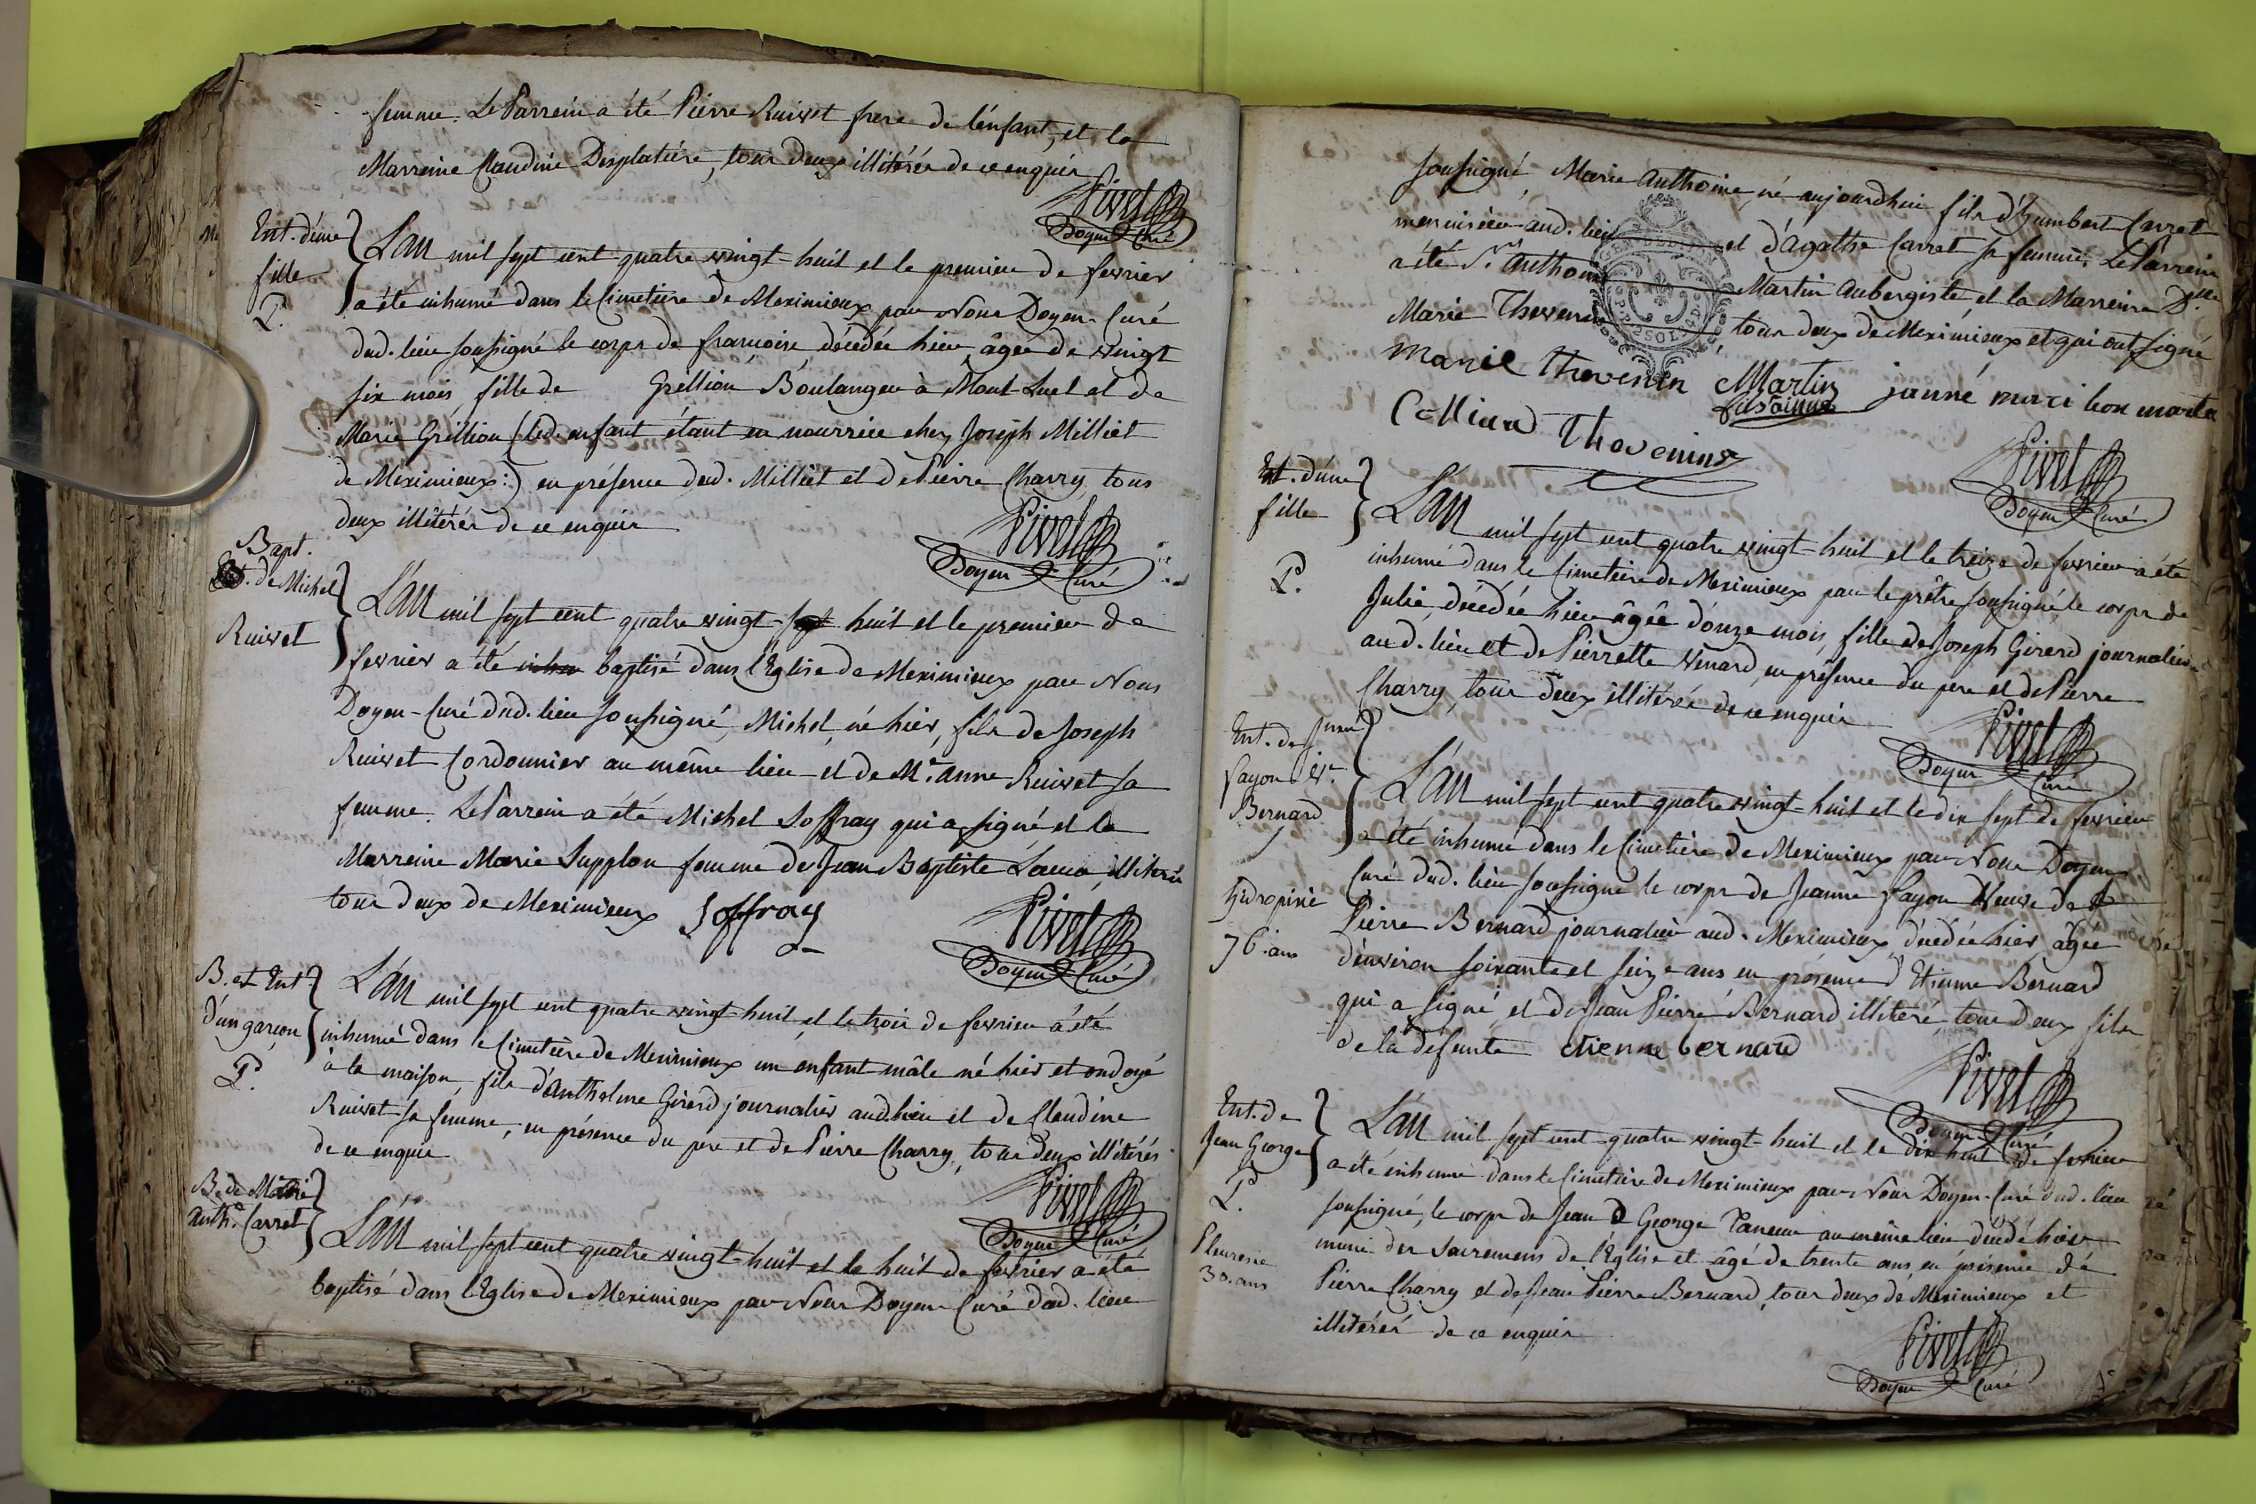 femme. Le Parrein a été Pierre Ruivet frere de l'enfant, et la
Marreine Claudine Desplatiére, tous deux illitérés de ce enquis
Pivet
Doyen Curé
Ent. d'une
fille
P.
L'an mil sept cent quatre vingt-huit et le premier de fevrier
a été inhumé dans le Cimetiere de Meximieux par Nous Doyen-Curé
dud. lieu soussigné le corps de francoise, décédée hier, âgée de vingt
six mois, fille de Gréllion Boulanger à Mont-Luel et de
Marie Gréllion (led. enfant étant en nourrice chez Joseph Milliet
de Meximieux:) en présence dud. Milliet et de Pierre Charry tous
deux illitérés de ce enquis
Pivet
Doyen Curé
Bapt.
de Michel
Ruivet
L'an mil sept cent quatre vingt-sept huit et le premier de
fevrier a été inhu baptisé dans l'Eglise de Meximieux par Nous
Doyen-Curé dud. lieu soussigné, Michel, né hier, fils de Joseph
Ruivet Cordonnier au même lieu et de Me. Anne Ruivet sa
femme. Le Parrein a été Michel Soffray qui a signé et la
Marreine Marie Supplon femme de Jean Baptiste illiterée
tous deux de Meximieux Soffray
Pivet
Doyen Curé
B. et Ent.
d'un garçon
P.
L'an mil sept cent quatre vingt-huit et le trois de fevrier a été
inhumé dans le Cimetière de Meximieux un enfant mâle né hier et ondoyé
à la maison, fils d'Anthelme Girerd journalier aud. lieu et de Claudine
Ruivet sa femme, en présence du pere et de Pierre Charry, tous deux illitérés
de ce enquis
Pivet
Doyen Curé
B. de Marie
Anthe. Carret
L'an mil sept cent quatre vingt-huit et le huit de fevrier a été
baptisé dans l'Eglise de Meximieux par Nous Doyen Curé dud. lieu
soussigné, Marie Anthoine, né aujourdhui fils d'humbert Carret
menuisier aud. lieu et d'Agathe Carret sa femme. Le Parrein
a été Sr. Anthoine Martin Aubergiste et la Marreine Dlle.
Marie Thevenin, tous deux de Meximieux et qui ont signé
Marie thevenin Martin janne
Thevenin
Pivet
Doyen Curé
Ent. d'une
fille
P.
L'an mil sept cent quatre vingt-huit et le treize de fevrier a été
inhumé dans le Cimetiere de Meximieux par le prêtre soussigné, le corps de
Julie, décédée hier âgée d'onze mois, fille de Joseph Girerd journalier
aud. lieu et de Pierrette Venard, en présence du pere et de Pierre
Charry, tous deux illitérés de ce enquis
Pivet
Doyen Curé
Ent. de
Fayon Ve.
Bernard
hidropisie
76. ans
L'an mil sept cent quatre vingt-huit et le dix sept de fevrier
a été inhumé dans le Cimetière de Meximieux par Nous Doyen
Curé dud. lieu soussigné le corps de Jeanne Fayon Veuve de
Pierre Bernard journalier aud. Meximieux, décédée hier, âgée
d'environ soixante et seize ans en présence d'Etienne Bernard
qui a signé, et de Jean Pierre Bernard illitéré, tous deux fils
de la defunte etienne bernard
Pivet
Doyen Curé
Ent. de
Jean George
P.
Pleuresie
30. ans
L'an mil sept cent quatre vingt-huit et le dix huit de fevrier
a été inhumé dans le Cimetiere de Meximieux par Nous Doyen-Curé dud. lieu
soussigné, le corps de Jean George au même lieu décédé hier
muni des Sacremens de l'Eglise et âgé de trente ans, en présence de
Pierre Charry et de Jean Pierre Bernard, tous deux de Meximieux et
illitérés de ce enquis
Pivet
Doyen Curé